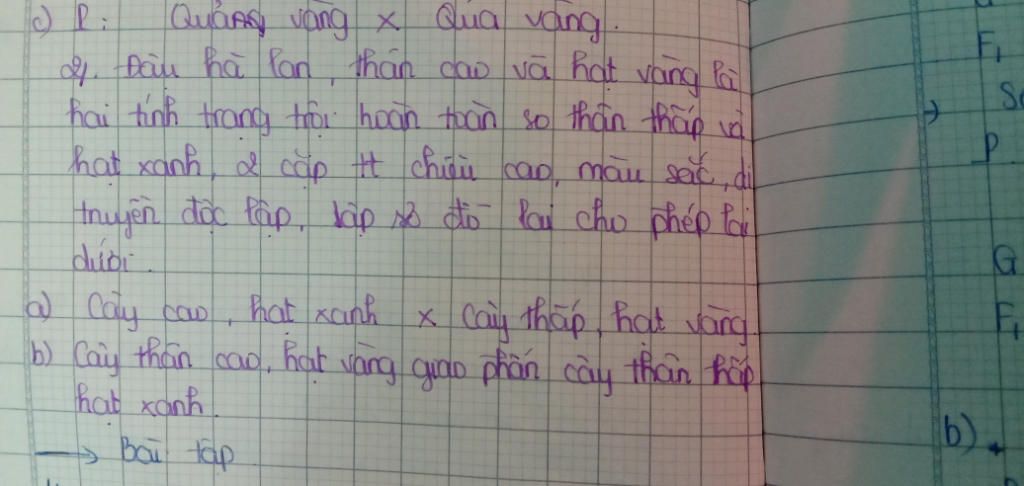 c) P: Quảng vàng x Quả vàng.
2. Đậu hà lan, thân cao và hạt vàng là
hai tính trạng trội hoàn toàn so thân thấp và
hạt xanh, 2 cặp tt chiều cao, màu sắc, di
truyền độc lập, lập sơ đồ lai cho phép lai
dưới.
a) Cây cao, hạt xanh x cây thấp, hạt vàng
b) Cây thân cao, hạt vàng giao phấn cây thân thấp
hạt xanh.
→ Bài tập
F1
P
G
F1
b)